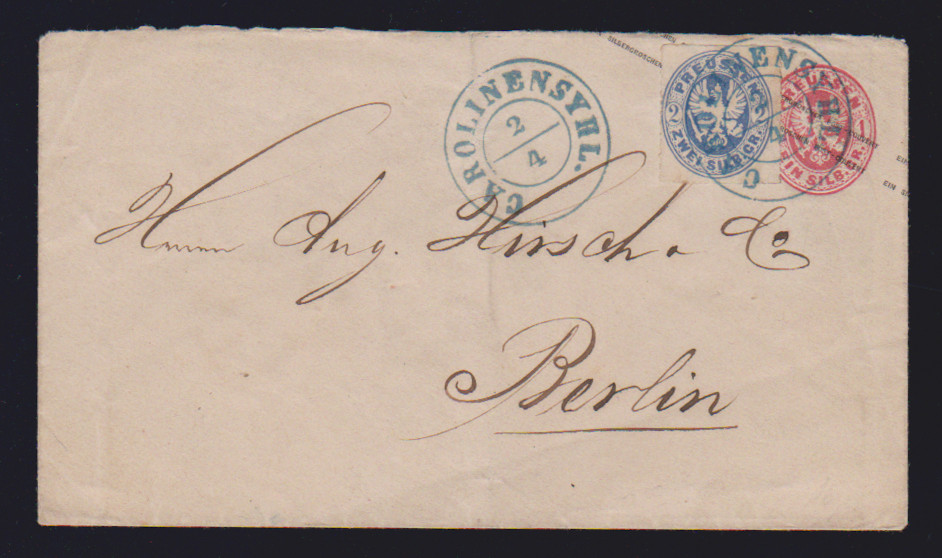 SILBERGROSCHEN
CAROLINENSYHL.
2/4
PREUSSEN
2
ZWEI SILB.GR.
PREUSSEN
1
EIN SILB.GR.
EIN
Herren Aug. Hirsch & Co
Berlin